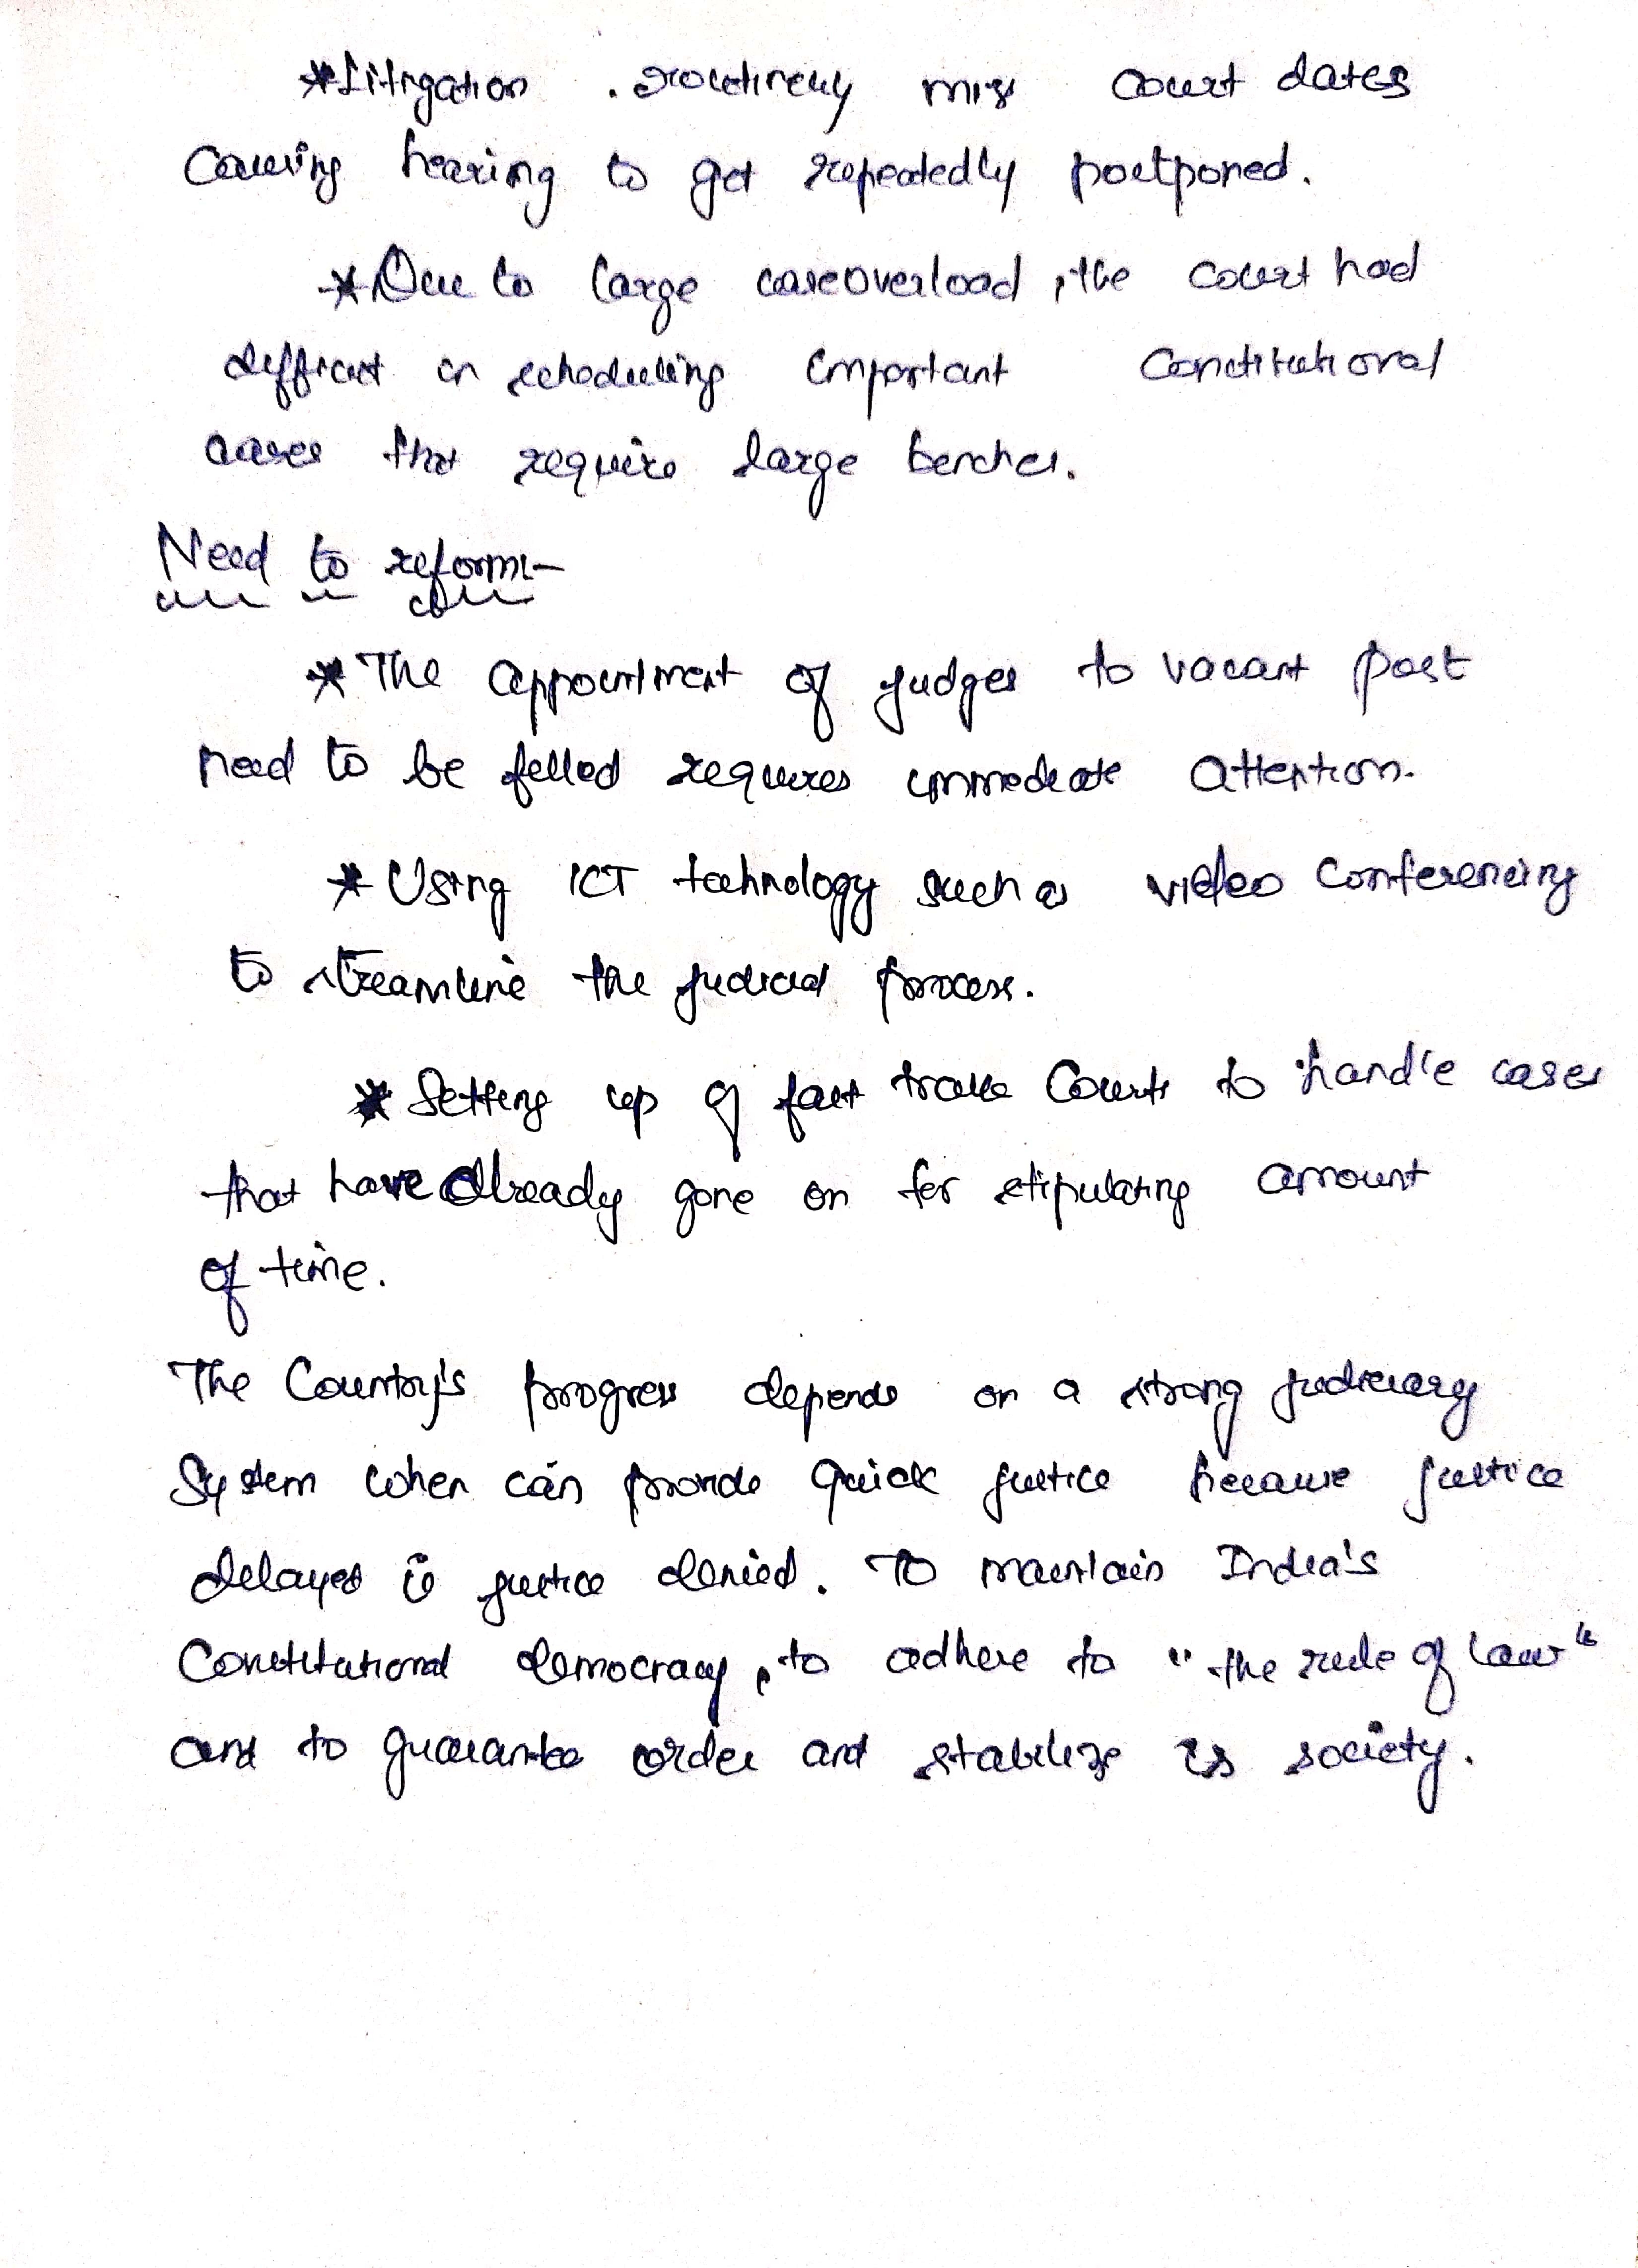 * Litigation routinely miss court dates
Causing hearing to get repeatedly postponed.
* Due to large caseoverload, the court had
difficut in scheduling important Constitutional
cases that require large benches.
Need to reform:-
* The appointment of judges to vacant post
need to be filled requires immediate attention.
* Using ICT technology such as video Conferencing
to streamline the judicial process.
* Setting up of fast track Courts to handle cases
that have already gone on for stipulating amount
of time.
The Country's progress depends on a strong judiciary
System when can provide quick justice because justice
delayed is justice denied. To maintain India's
Constitutional democracy, to adhere to "the rule of law"
and to guarantee order and stabilize is society.